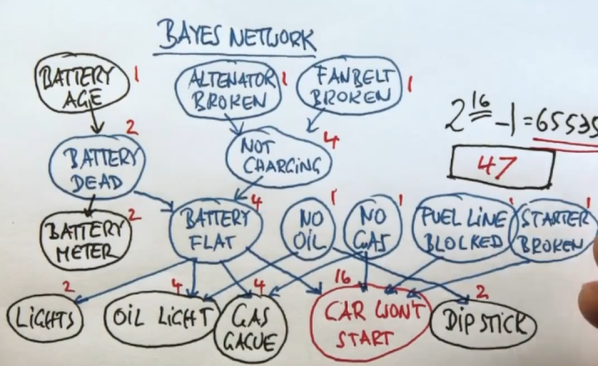 BAYES NETWORK
BATTERY
AGE
1
ALTENATOR
BROKEN
1
FANBELT
BROKEN
1
2^16-1=65535
47
BATTERY
DEAD
2
NOT
CHARGING
4
BATTERY
METER
2
BATTERY
FLAT
4
NO
OIL
1
NO
GAS
1
FUEL LINE
BLOCKED
1
STARTER
BROKEN
1
LIGHTS
2
OIL LIGHT
4
GAS
GAGUE
4
CAR WON'T
START
16
DIP STICK
2